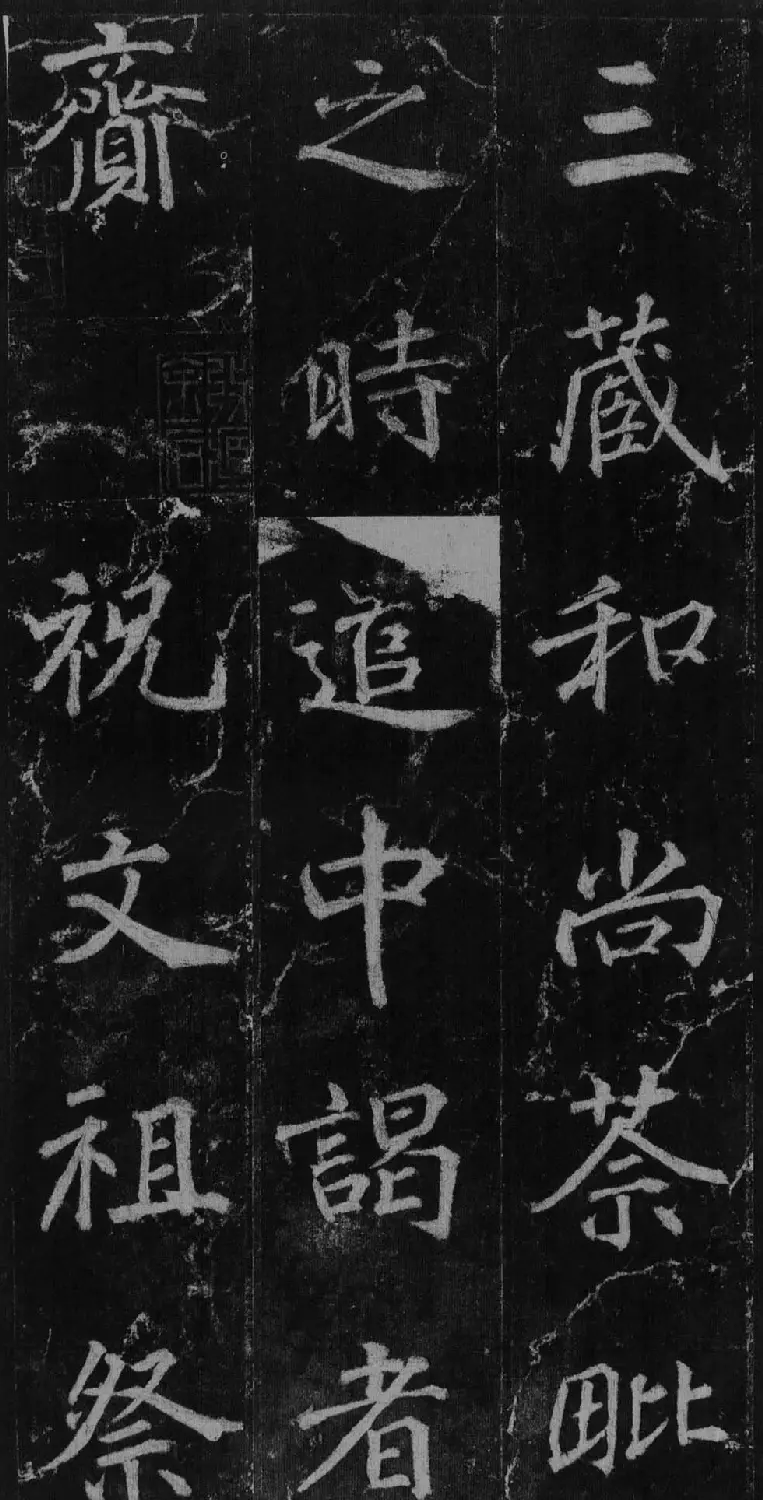 三藏和尚荼毗
之時遣中謁者
齎祝文祖祭